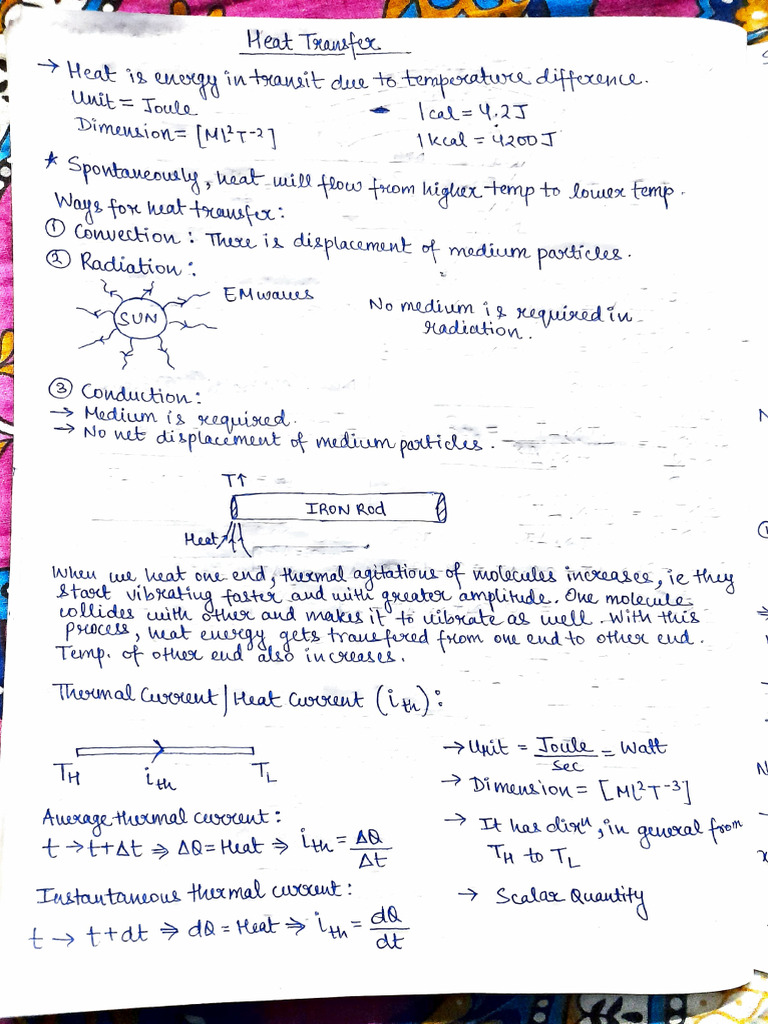 Heat Transfer
→ Heat is energy in transit due to temperature difference.
Unit = Joule
Dimension = [ML²T⁻²]
- 1 cal = 4.2J
1 kcal = 4200J
* Spontaneously, heat will flow from higher temp to lower temp.
Ways for heat transfer:
① Convection: There is displacement of medium particles.
② Radiation:
SUN
EM waves
No medium is required in
radiation.
③ Conduction:
→ Medium is required.
→ No net displacement of medium particles.
T↑
IRON ROD
Heat
When we heat one end, thermal agitations of molecules increases, ie they
start vibrating faster and with greater amplitude. One molecule
collides with other and makes it to vibrate as well. With this
process, heat energy gets transfered from one end to other end.
Temp. of other end also increases.
Thermal Current | Heat Current (i_th):
T_H i_th T_L
→ Unit = Joule/Sec = Watt
→ Dimension = [ML²T⁻³]
→ It has dirⁿ, in general from
T_H to T_L
→ Scalar Quantity
Average thermal current:
t → t+Δt ⇒ ΔQ = Heat ⇒ i_th = ΔQ/Δt
Instantaneous thermal current:
t → t+dt ⇒ dQ = Heat ⇒ i_th = dQ/dt